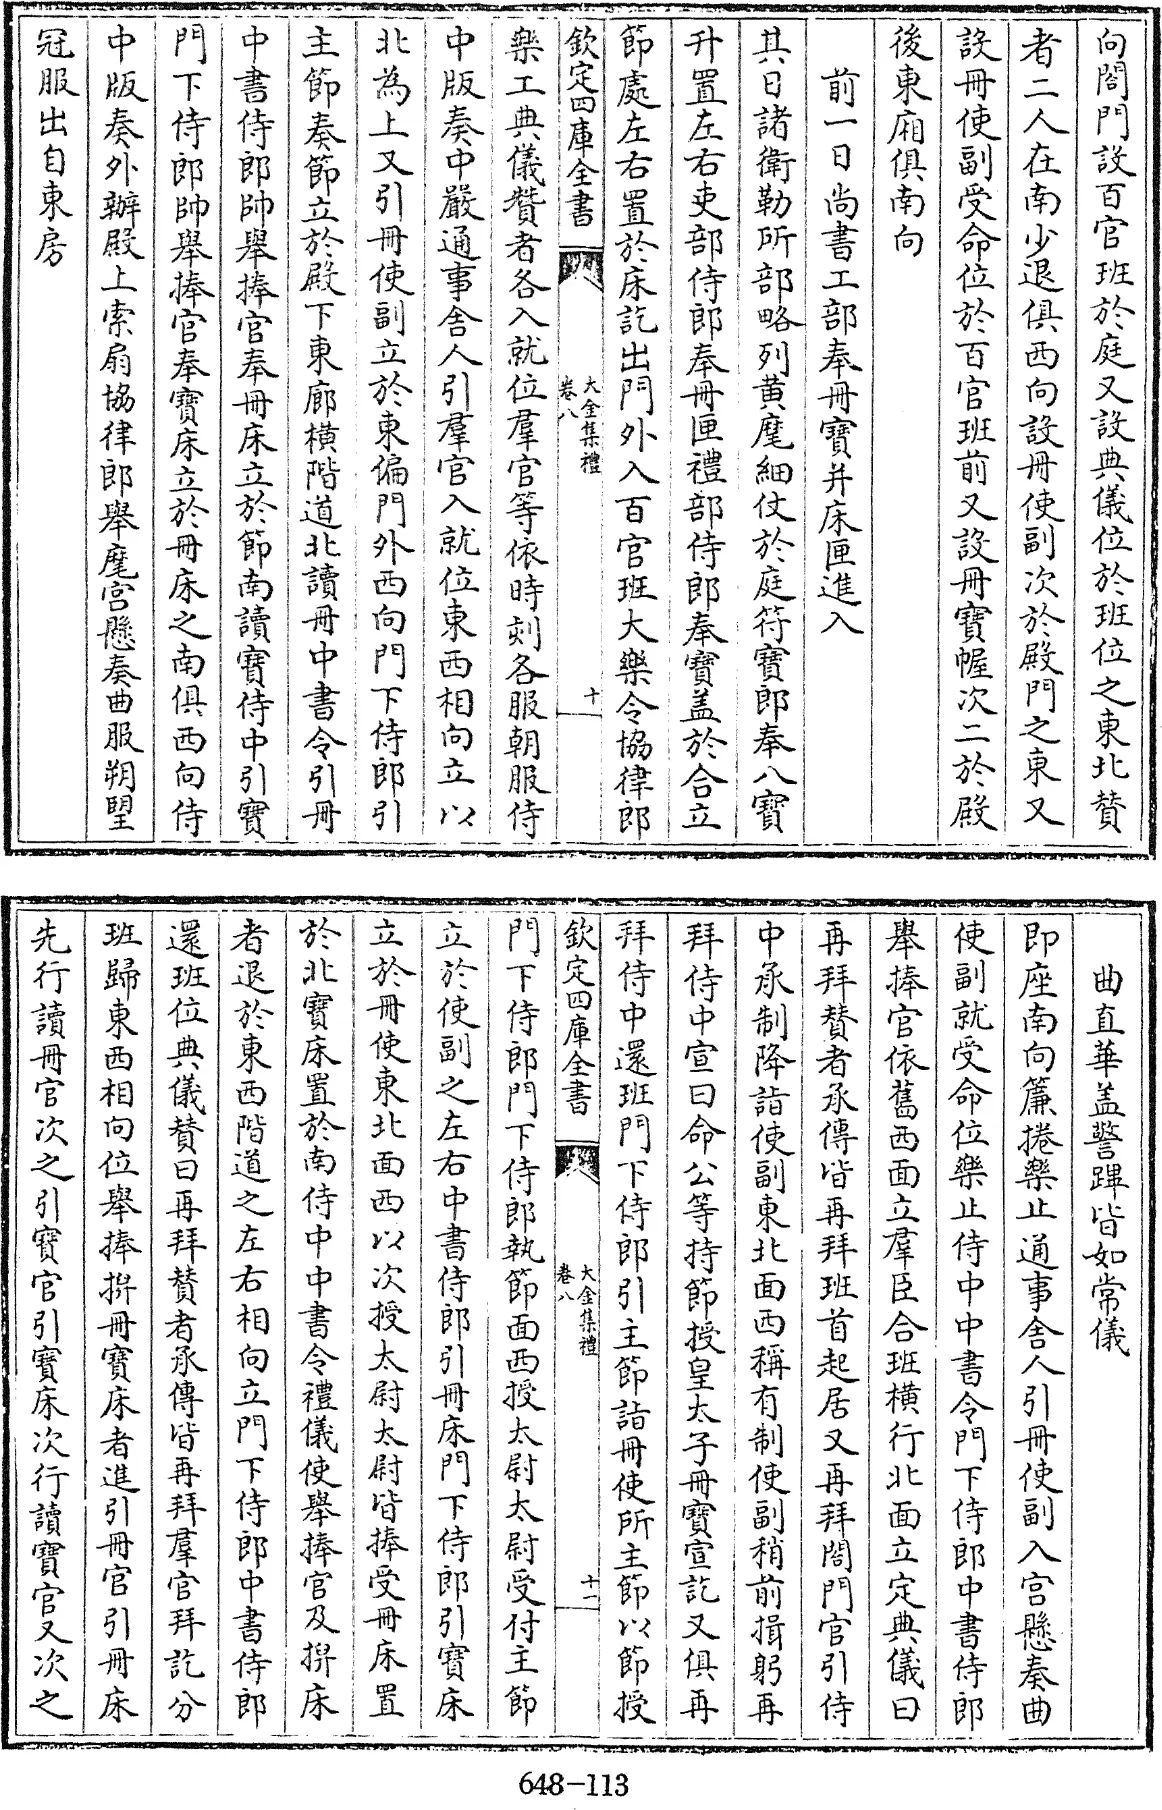 向閤門設百官班於庭又設典儀位於班位之東北贊
者二人在南少退俱西向設冊使副次於殿門之東又
設冊使副受命位於百官班前又設冊寶幄次二於殿
後東廂俱南向
前一日尚書工部奉冊寶并床匣進入
其日諸衛勒所部略列黄麾細仗於庭符寶郎奉八寶
升置左右吏部侍郎奉冊匣禮部侍郎奉寶盖於合立
節處左右置於床訖出門外入百官班大樂令協律郎
欽定四庫全書
大金集禮
卷八
十
樂工典儀贊者各入就位羣官等依時刻各服朝服侍
中版奏中嚴通事舍人引羣官入就位東西相向立以
北為上又引冊使副立於東偏門外西向門下侍郎引
主節奏節立於殿下東廊橫階道北讀冊中書令引冊
中書侍郎帥舉捧官奉冊床立於節南讀寶侍中引寶
門下侍郎帥舉捧官奉寶床立於冊床之南俱西向侍
中版奏外辦殿上索扇協律郎舉麾宫懸奏曲服朔望
冠服出自東房
曲直華盖警蹕皆如常儀
即座南向簾捲樂止通事舍人引冊使副入宫懸奏曲
使副就受命位樂止侍中中書令門下侍郎中書侍郎
舉捧官依舊西面立羣臣合班橫行北面立定典儀曰
再拜贊者承傳皆再拜班首起居又再拜閤門官引侍
中承制降詣使副東北面西稱有制使副稍前揖躬再
拜侍中宣曰命公等持節授皇太子冊寶宣訖又俱再
拜侍中還班門下侍郎引主節詣冊使所主節以節授
欽定四庫全書
大金集禮
卷八
十一
門下侍郎門下侍郎執節面西授太尉太尉受付主節
立於使副之左右中書侍郎引冊床門下侍郎引寶床
立於冊使東北面西以次授太尉太尉皆捧受冊床置
於北寶床置於南侍中中書令禮儀使舉捧官及搿床
者退於東西階道之左右相向立門下侍郎中書侍郎
還班位典儀贊曰再拜贊者承傳皆再拜羣官拜訖分
班歸東西相向位舉捧搿冊寶床者進引冊官引冊床
先行讀冊官次之引寶官引寶床次行讀寶官又次之
648-113